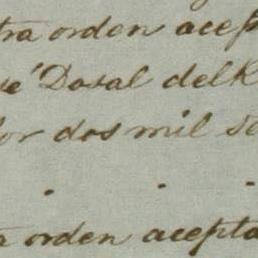 tra orden acep
se Dosal del R
or dos mil se
a orden acepta